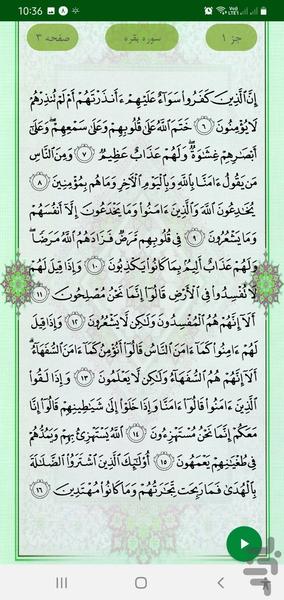 10:36
Vo)) LTE1
جز ۱
سوره بقره
صفحه ۳
إِنَّ ٱلَّذِينَ كَفَرُوا۟ سَوَآءٌ عَلَيْهِمْ ءَأَنذَرْتَهُمْ أَمْ لَمْ تُنذِرْهُمْ
لَا يُؤْمِنُونَ ۝٦ خَتَمَ ٱللَّهُ عَلَىٰ قُلُوبِهِمْ وَعَلَىٰ سَمْعِهِمْ ۖ وَعَلَىٰٓ
أَبْصَٰرِهِمْ غِشَٰوَةٌ ۖ وَلَهُمْ عَذَابٌ عَظِيمٌ ۝٧ وَمِنَ ٱلنَّاسِ
مَن يَقُولُ ءَامَنَّا بِٱللَّهِ وَبِٱلْيَوْمِ ٱلْءَاخِرِ وَمَا هُم بِمُؤْمِنِينَ ۝٨
يُخَٰدِعُونَ ٱللَّهَ وَٱلَّذِينَ ءَامَنُوا۟ وَمَا يَخْدَعُونَ إِلَّآ أَنفُسَهُمْ
وَمَا يَشْعُرُونَ ۝٩ فِى قُلُوبِهِم مَّرَضٌ فَزَادَهُمُ ٱللَّهُ مَرَضًا ۖ
وَلَهُمْ عَذَابٌ أَلِيمٌۢ بِمَا كَانُوا۟ يَكْذِبُونَ ۝١٠ وَإِذَا قِيلَ لَهُمْ
لَا تُفْسِدُوا۟ فِى ٱلْأَرْضِ قَالُوٓا۟ إِنَّمَا نَحْنُ مُصْلِحُونَ ۝١١
أَلَآ إِنَّهُمْ هُمُ ٱلْمُفْسِدُونَ وَلَٰكِن لَّا يَشْعُرُونَ ۝١٢ وَإِذَا قِيلَ
لَهُمْ ءَامِنُوا۟ كَمَآ ءَامَنَ ٱلنَّاسُ قَالُوٓا۟ أَنُؤْمِنُ كَمَآ ءَامَنَ ٱلسُّفَهَآءُ ۗ
أَلَآ إِنَّهُمْ هُمُ ٱلسُّفَهَآءُ وَلَٰكِن لَّا يَعْلَمُونَ ۝١٣ وَإِذَا لَقُوا۟
ٱلَّذِينَ ءَامَنُوا۟ قَالُوٓا۟ ءَامَنَّا وَإِذَا خَلَوْا۟ إِلَىٰ شَيَٰطِينِهِمْ قَالُوٓا۟ إِنَّا
مَعَكُمْ إِنَّمَا نَحْنُ مُسْتَهْزِءُونَ ۝١٤ ٱللَّهُ يَسْتَهْزِئُ بِهِمْ وَيَمُدُّهُمْ
فِى طُغْيَٰنِهِمْ يَعْمَهُونَ ۝١٥ أُو۟لَٰٓئِكَ ٱلَّذِينَ ٱشْتَرَوُا۟ ٱلضَّلَٰلَةَ
بِٱلْهُدَىٰ فَمَا رَبِحَت تِّجَٰرَتُهُمْ وَمَا كَانُوا۟ مُهْتَدِينَ ۝١٦